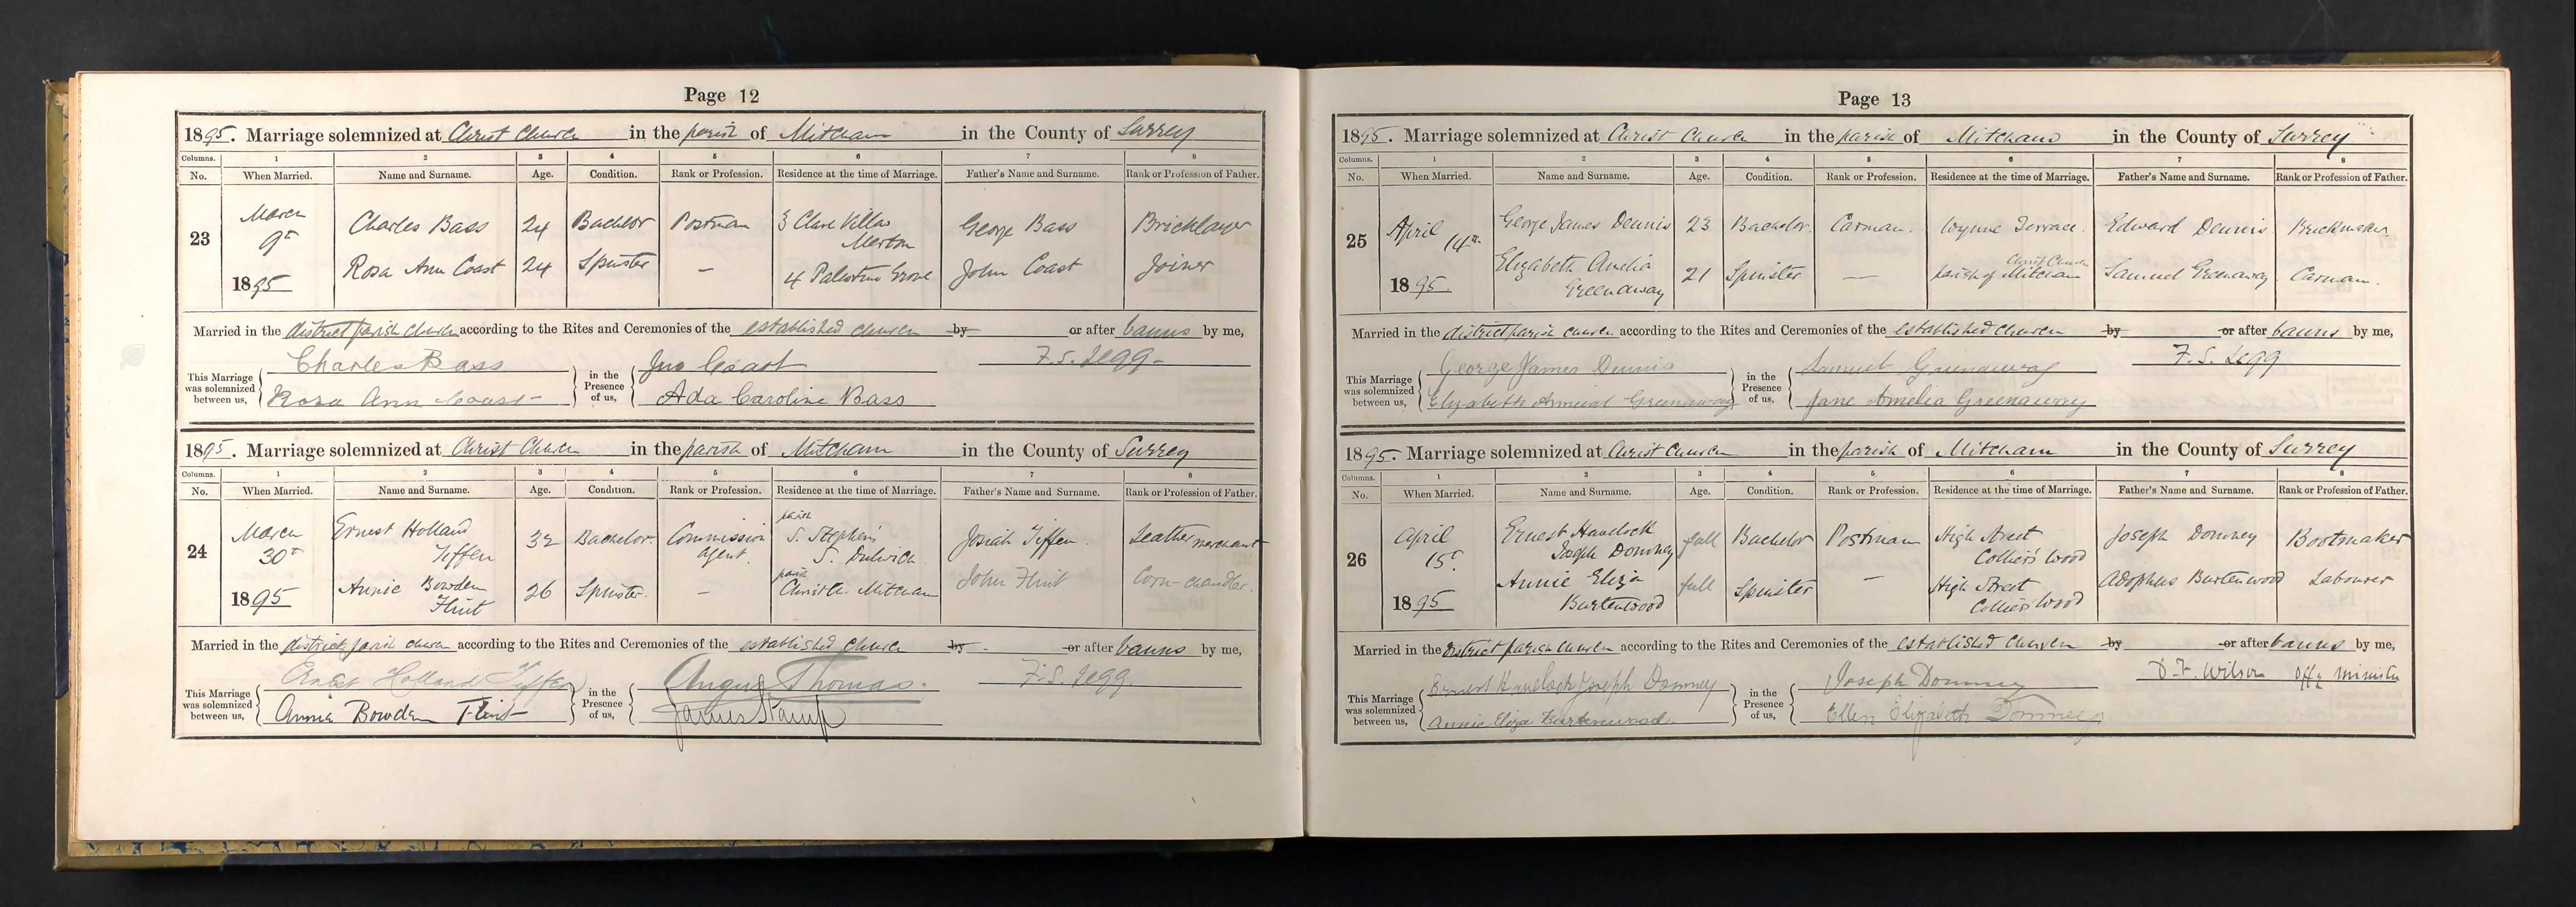 Page 12
1895. Marriage solemnized at Christ Church in the parish of Mitcham in the County of Surrey
Columns. 1 2 3 4 5 6 7 8
No. When Married. Name and Surname. Age. Condition. Rank or Profession. Residence at the time of Marriage. Father's Name and Surname. Rank or Profession of Father.
23 March 9th 1895
Charles Bass 24 Bachelor Postman 3 Clare Villas Merton George Bass Bricklayer
Rosa Ann Coast 24 Spinster — 4 Palestine Grove John Coast Joiner
Married in the district parish church according to the Rites and Ceremonies of the established church by or after banns by me,
This Marriage was solemnized between us, Charles Bass in the Presence of us, Jno Coast F. S. Legg
Rosa Ann Coast Ada Caroline Bass
1895. Marriage solemnized at Christ Church in the parish of Mitcham in the County of Surrey
Columns. 1 2 3 4 5 6 7 8
No. When Married. Name and Surname. Age. Condition. Rank or Profession. Residence at the time of Marriage. Father's Name and Surname. Rank or Profession of Father.
24 March 30th 1895
Ernest Holland Tiffen 32 Bachelor. Commission agent. parish S. Stephen's S. Dulwich Josiah Tiffen. Leather merchant
Annie Bowden Flint 26 Spinster. — parish Christ Ch. Mitcham John Flint Corn-chandler.
Married in the district parish church according to the Rites and Ceremonies of the established church by or after banns by me,
This Marriage was solemnized between us, Ernest Holland Tiffen in the Presence of us, Angus Thomas. F. S. Legg
Annie Bowden Flint James Stamp
Page 13
1895. Marriage solemnized at Christ Church in the parish of Mitcham in the County of Surrey
Columns. 1 2 3 4 5 6 7 8
No. When Married. Name and Surname. Age. Condition. Rank or Profession. Residence at the time of Marriage. Father's Name and Surname. Rank or Profession of Father.
25 April 14th 1895.
George James Dennis 23 Bachelor. Carman. Wynne Terrace. Edward Dennis Brickmaker.
Elizabeth Amelia Greenaway 21 Spinster — parish of Christ Church Mitcham Samuel Greenaway. Carman.
Married in the district parish church according to the Rites and Ceremonies of the established church by or after banns by me,
This Marriage was solemnized between us, George James Dennis in the Presence of us, Samuel Greenaway F. S. Legg
Elizabeth Greenaway Jane Amelia Greenaway
1895. Marriage solemnized at Christ Church in the parish of Mitcham in the County of Surrey
Columns. 1 2 3 4 5 6 7 8
No. When Married. Name and Surname. Age. Condition. Rank or Profession. Residence at the time of Marriage. Father's Name and Surname. Rank or Profession of Father.
26 April 15th 1895
Ernest Havelock Joseph Domney full Bachelor Postman High Street Collier's Wood Joseph Domney Bootmaker
Annie Eliza Burtenwood full Spinster — High Street Collier's Wood Adophus Burtenwood Labourer
Married in the District parish church according to the Rites and Ceremonies of the established church by or after banns by me,
This Marriage was solemnized between us, Ernest Havelock Joseph Domney in the Presence of us, Joseph Domney D. F. Wilson Offg Minister
Annie Eliza Burtenwood. Ellen Elizabeth Domney